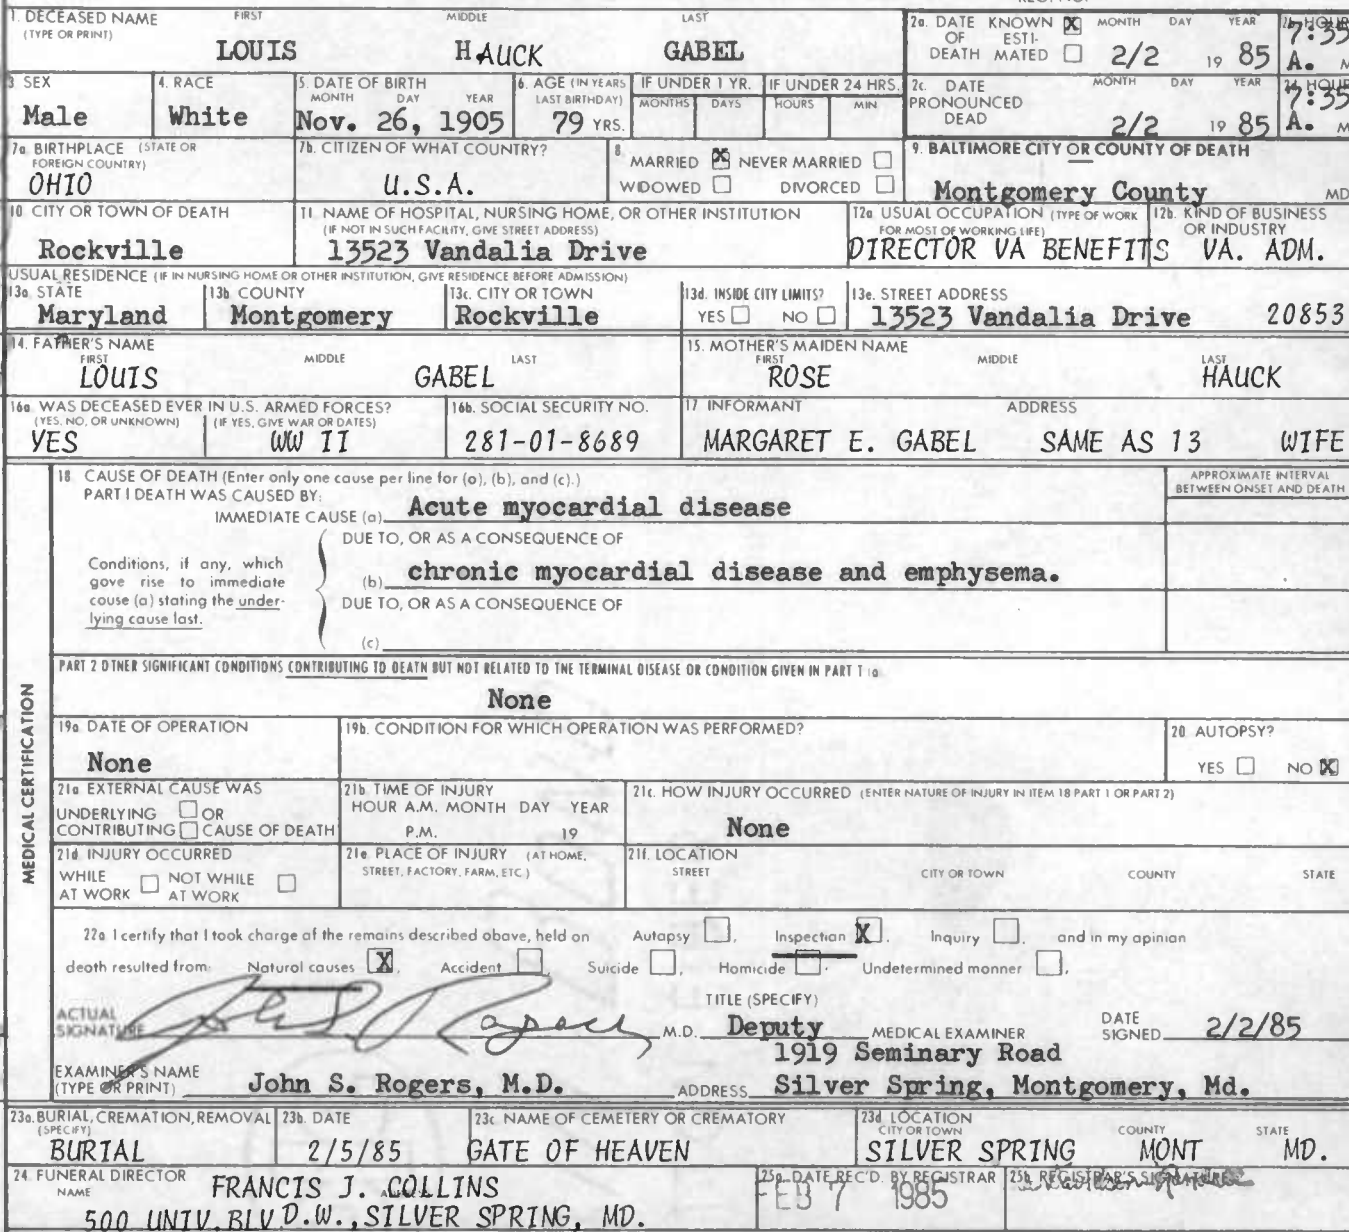 1. DECEASED NAME FIRST MIDDLE LAST
(TYPE OR PRINT)
LOUIS HAUCK GABEL
2a. DATE KNOWN [X] MONTH DAY YEAR 2b. HOUR
OF ESTI-
DEATH MATED [ ] 2/2 19 85 7:35 A. M
3 SEX Male
4. RACE White
5. DATE OF BIRTH
MONTH DAY YEAR
Nov. 26, 1905
6. AGE (IN YEARS
LAST BIRTHDAY)
79 YRS.
IF UNDER 1 YR. IF UNDER 24 HRS.
MONTHS DAYS HOURS MIN
2c. DATE MONTH DAY YEAR HOUR
PRONOUNCED
DEAD 2/2 19 85 7:35 A. M
7a BIRTHPLACE (STATE OR
FOREIGN COUNTRY)
OHIO
7b. CITIZEN OF WHAT COUNTRY?
U.S.A.
8. MARRIED [X] NEVER MARRIED [ ]
WIDOWED [ ] DIVORCED [ ]
9. BALTIMORE CITY OR COUNTY OF DEATH
Montgomery County MD
10 CITY OR TOWN OF DEATH
Rockville
11. NAME OF HOSPITAL, NURSING HOME, OR OTHER INSTITUTION
(IF NOT IN SUCH FACILITY, GIVE STREET ADDRESS)
13523 Vandalia Drive
12a USUAL OCCUPATION (TYPE OF WORK
FOR MOST OF WORKING LIFE)
DIRECTOR VA BENEFITS
12b. KIND OF BUSINESS
OR INDUSTRY
VA. ADM.
USUAL RESIDENCE (IF IN NURSING HOME OR OTHER INSTITUTION, GIVE RESIDENCE BEFORE ADMISSION)
13a. STATE
Maryland
13b. COUNTY
Montgomery
13c. CITY OR TOWN
Rockville
13d. INSIDE CITY LIMITS?
YES [ ] NO [ ]
13e. STREET ADDRESS
13523 Vandalia Drive 20853
14. FATHER'S NAME
FIRST MIDDLE LAST
LOUIS GABEL
15. MOTHER'S MAIDEN NAME
FIRST MIDDLE LAST
ROSE HAUCK
16a WAS DECEASED EVER IN U.S. ARMED FORCES?
(YES, NO, OR UNKNOWN) (IF YES, GIVE WAR OR DATES)
YES WW II
16b. SOCIAL SECURITY NO.
281-01-8689
17 INFORMANT ADDRESS
MARGARET E. GABEL SAME AS 13 WIFE
MEDICAL CERTIFICATION
18 CAUSE OF DEATH (Enter only one cause per line for (a), (b), and (c).)
PART I DEATH WAS CAUSED BY:
APPROXIMATE INTERVAL
BETWEEN ONSET AND DEATH
IMMEDIATE CAUSE (a) Acute myocardial disease
DUE TO, OR AS A CONSEQUENCE OF
Conditions, if any, which
gove rise to immediate
cause (a) stating the under-
lying cause last.
(b) chronic myocardial disease and emphysema.
DUE TO, OR AS A CONSEQUENCE OF
(c)
PART 2 OTHER SIGNIFICANT CONDITIONS CONTRIBUTING TO DEATH BUT NOT RELATED TO THE TERMINAL DISEASE OR CONDITION GIVEN IN PART 1 (a)
None
19a DATE OF OPERATION
None
19b. CONDITION FOR WHICH OPERATION WAS PERFORMED?
20 AUTOPSY?
YES [ ] NO [X]
21a EXTERNAL CAUSE WAS
UNDERLYING [ ] OR
CONTRIBUTING [ ] CAUSE OF DEATH
21b TIME OF INJURY
HOUR A.M. MONTH DAY YEAR
P.M. 19
21c. HOW INJURY OCCURRED (ENTER NATURE OF INJURY IN ITEM 18 PART 1 OR PART 2)
None
21d INJURY OCCURRED
WHILE [ ] NOT WHILE [ ]
AT WORK AT WORK
21e PLACE OF INJURY (AT HOME,
STREET, FACTORY, FARM, ETC.)
21f. LOCATION
STREET CITY OR TOWN COUNTY STATE
22a I certify that I took charge of the remains described above, held on Autopsy [ ], Inspection [X], Inquiry [ ], and in my opinion
death resulted from: Natural causes [X], Accident [ ], Suicide [ ], Homicide [ ], Undetermined manner [ ],
TITLE (SPECIFY)
ACTUAL
SIGNATURE John S. Rogers M.D. Deputy MEDICAL EXAMINER DATE
SIGNED 2/2/85
1919 Seminary Road
EXAMINER'S NAME
(TYPE OR PRINT) John S. Rogers, M.D. ADDRESS Silver Spring, Montgomery, Md.
23a. BURIAL, CREMATION, REMOVAL
(SPECIFY)
BURIAL
23b. DATE
2/5/85
23c NAME OF CEMETERY OR CREMATORY
GATE OF HEAVEN
23d LOCATION
CITY OR TOWN COUNTY STATE
SILVER SPRING MONT MD.
24. FUNERAL DIRECTOR
NAME FRANCIS J. COLLINS
500 UNIV. BLVD. W., SILVER SPRING, MD.
25a. DATE REC'D. BY REGISTRAR
FEB 7 1985
25b. REGISTRAR'S SIGNATURE